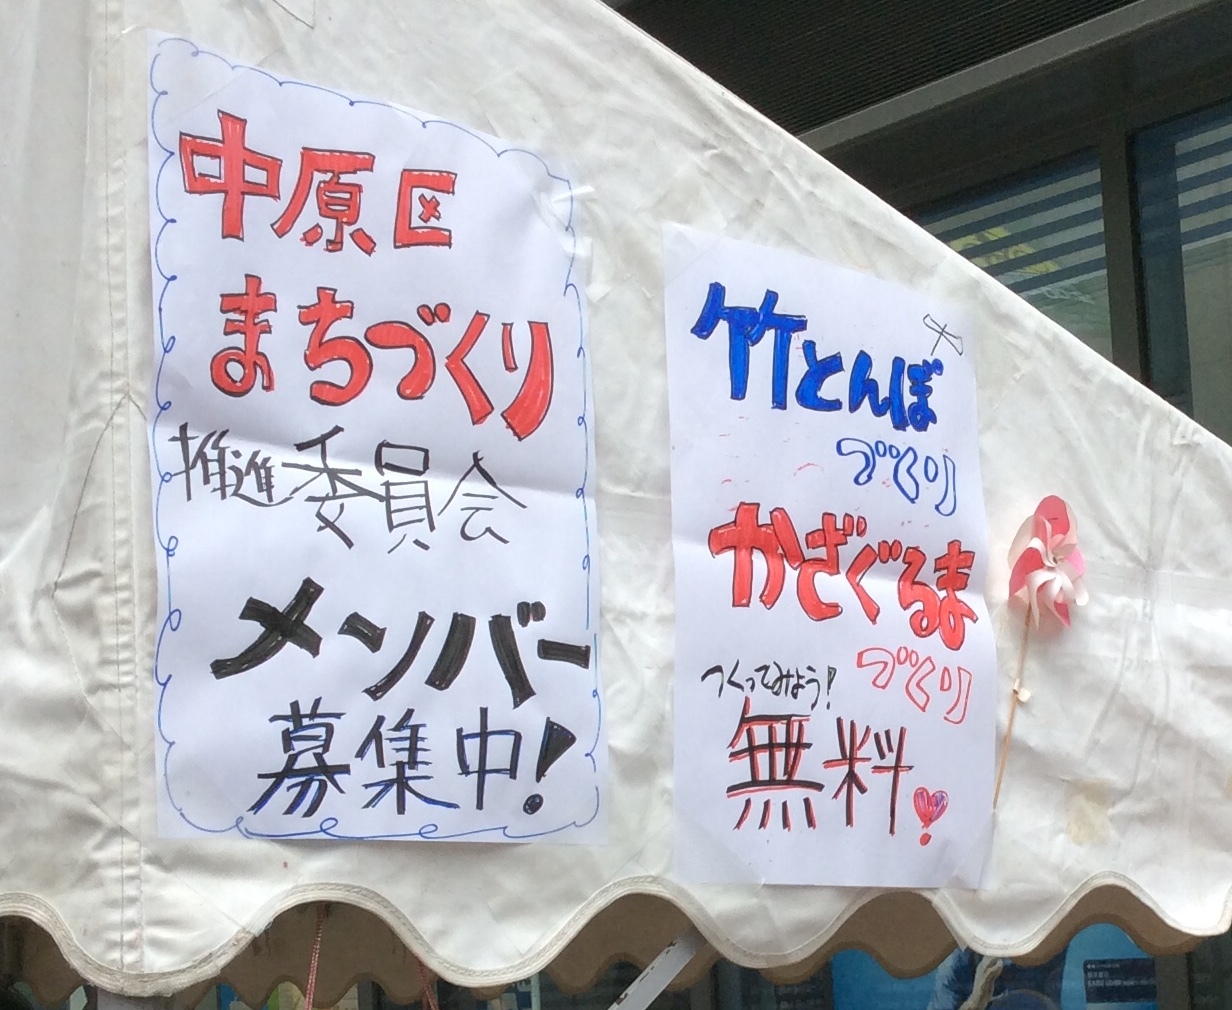 中原区
まちづくり
推進委員会
メンバー
募集中!
竹とんぼ
づくり
かざぐるま
づくり
つくってみよう!
無料